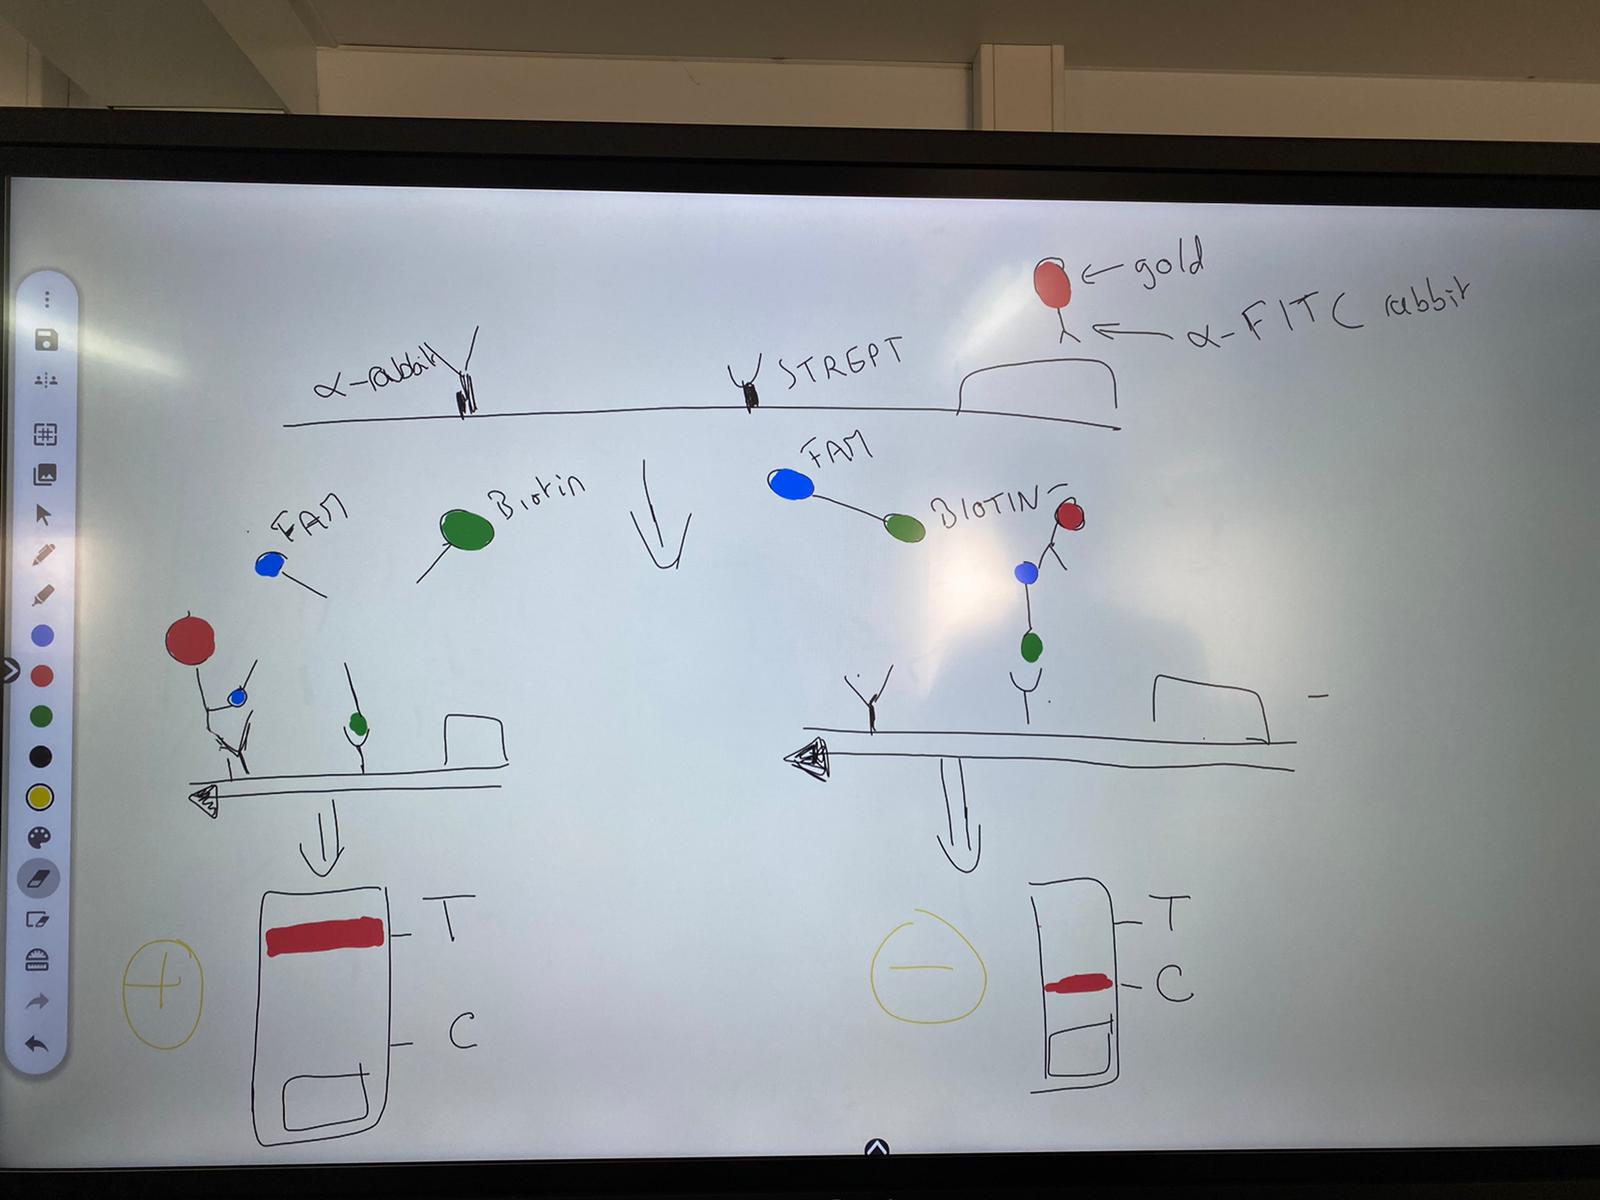 gold
α-FITC rabbit
α-rabbit
STREPT
FAM
Biotin
FAM
BIOTIN
T
C
+
T
C
−